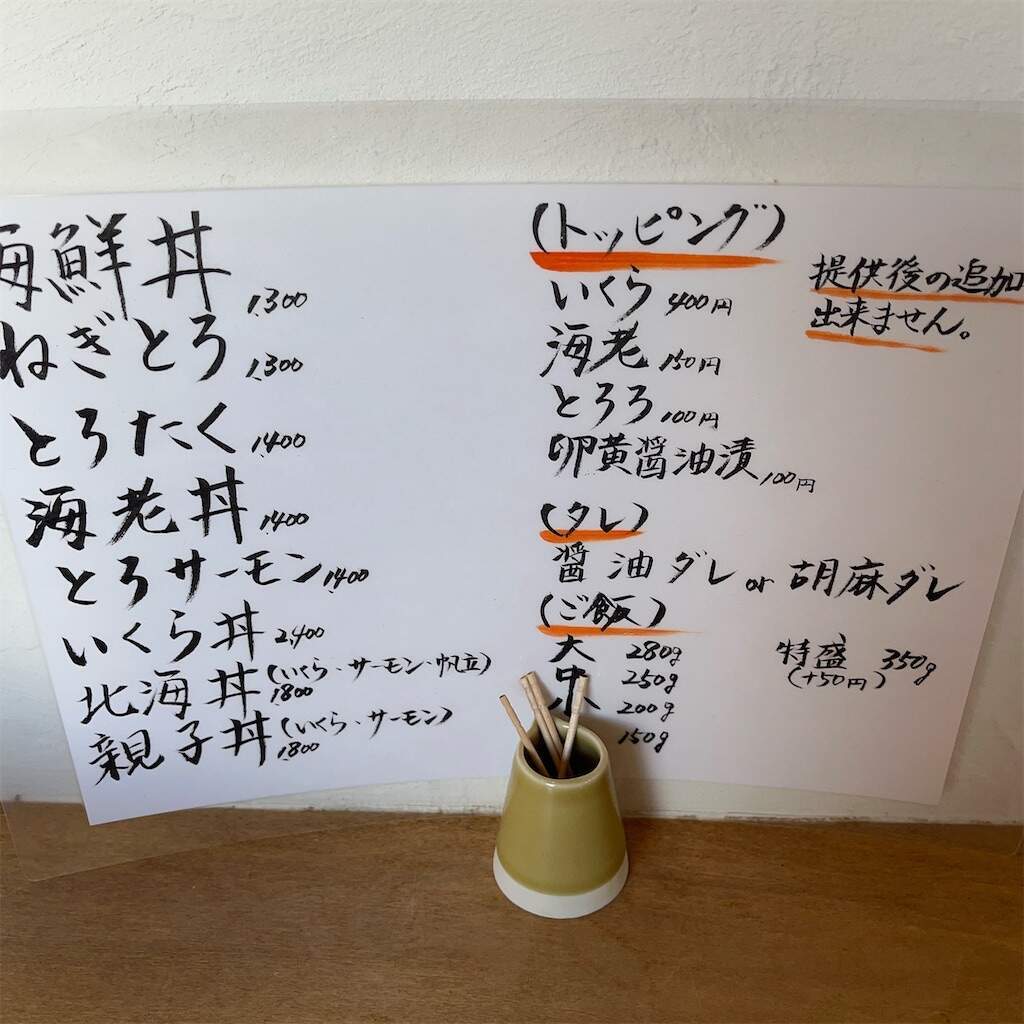 海鮮丼 1,300
ねぎとろ 1,300
とろたく 1,400
海老丼 1,400
とろサーモン 1,400
いくら丼 2,400
北海丼(いくら・サーモン・帆立) 1,800
親子丼(いくら・サーモン) 1,800
(トッピング)
いくら 400円
海老 150円
とろろ 100円
卵黄醤油漬 100円
提供後の追加
出来ません。
(タレ)
醤油ダレ or 胡麻ダレ
(ご飯)
大 280g
中 250g
小 200g
150g
特盛 350g
(+50円)